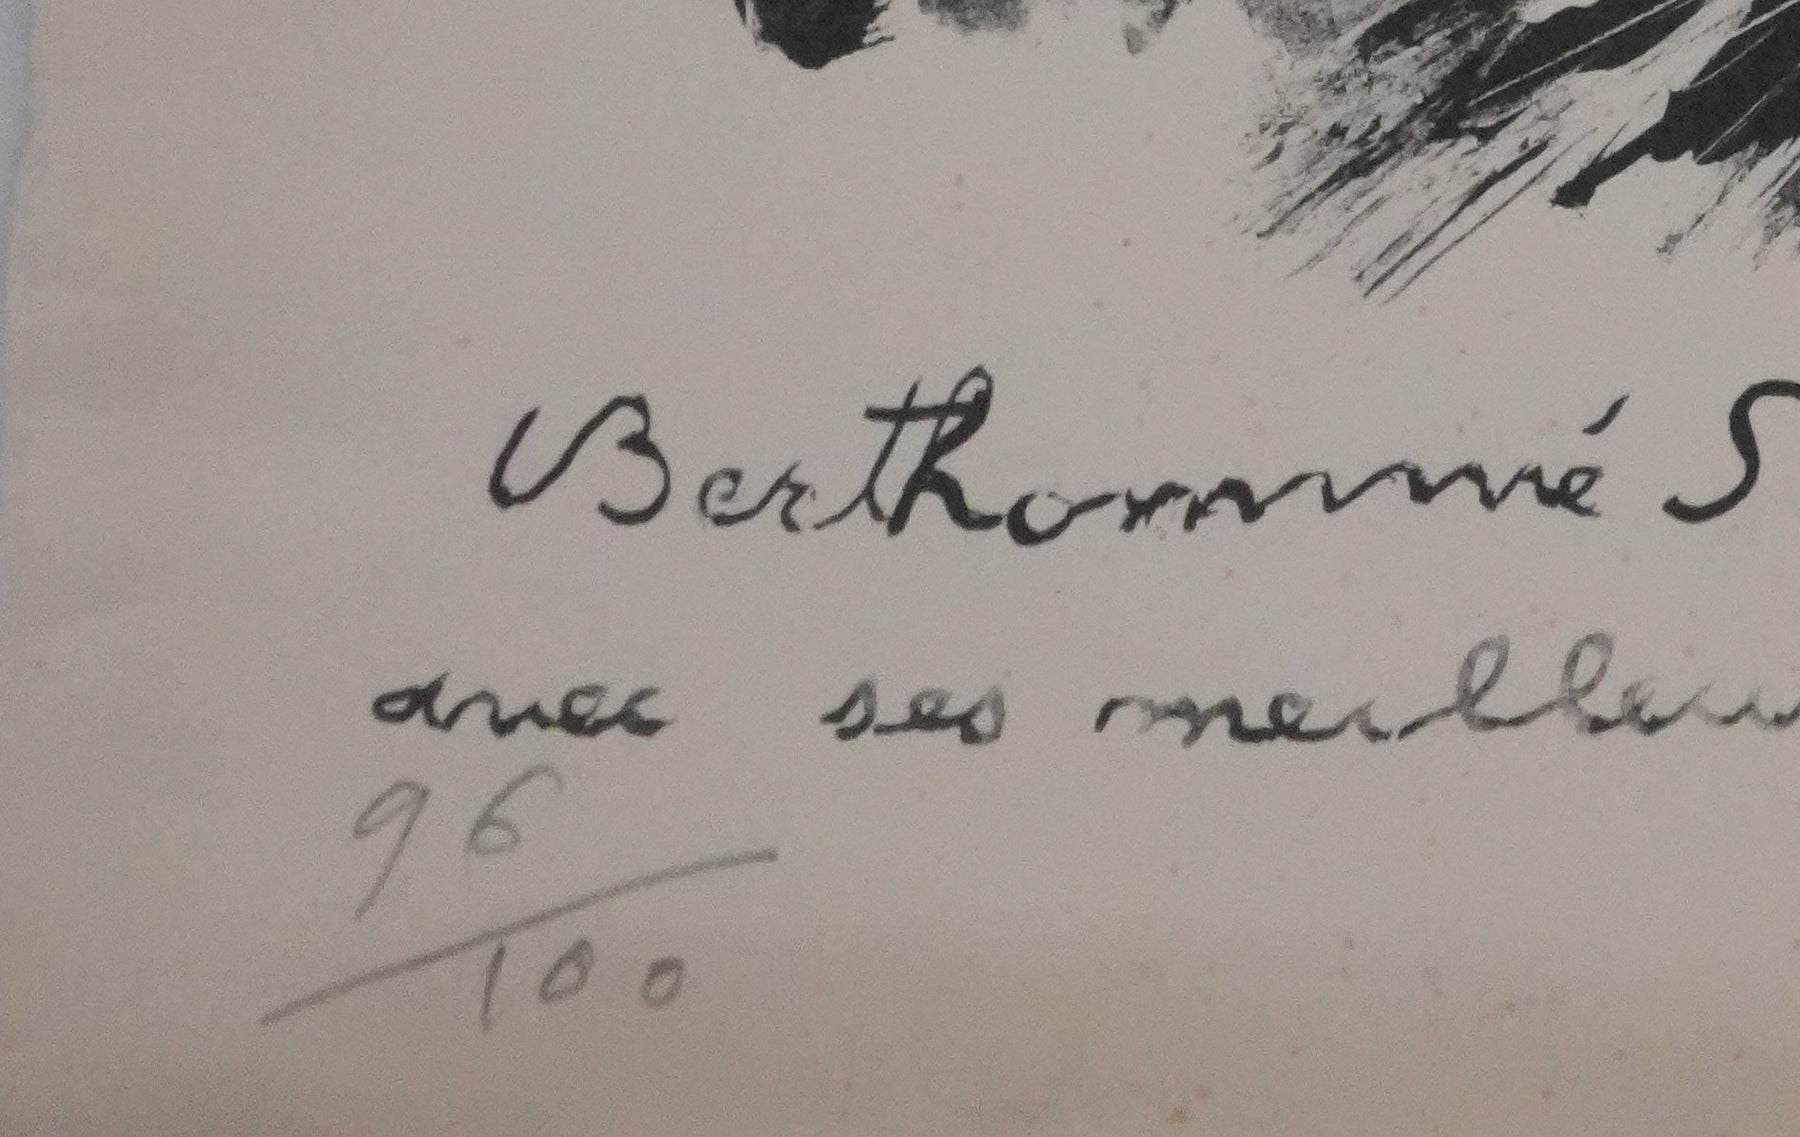 Berthommé S
avec ses meilleu
96
100